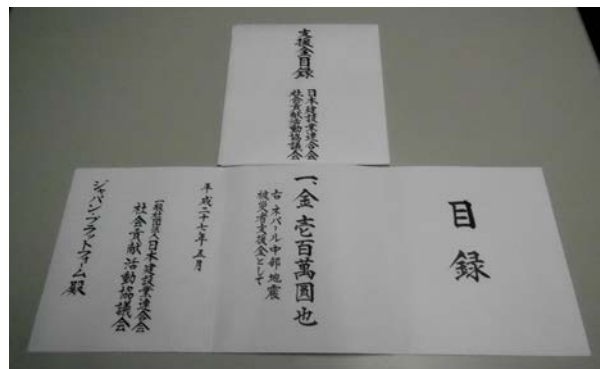 支援金目録
日本建設業連合会
社会貢献活動協議会
目録
一、金壱百萬圓也
右、ネパール中部地震
被災者支援金として
平成二十七年五月
一般社団法人日本建設業連合会
社会貢献活動協議会
ジャパン・プラットフォーム殿